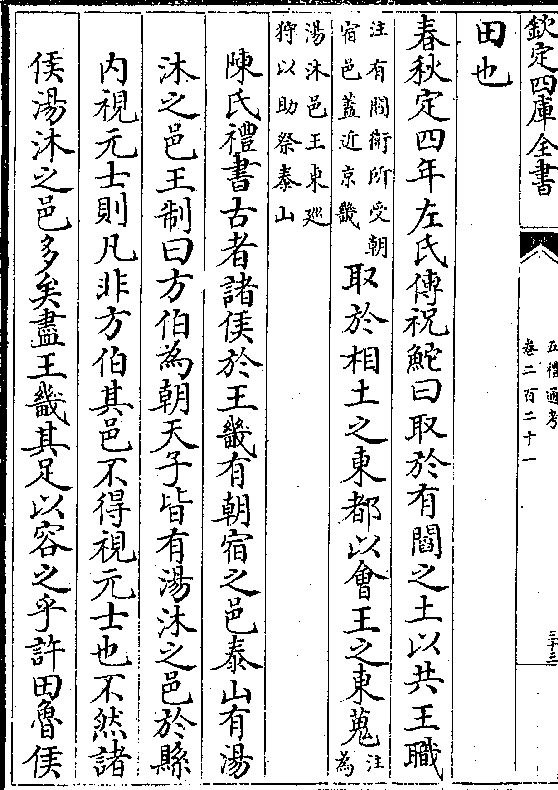 欽定四庫全書
五禮通考
卷二百二十一
三十三
田也
春秋定四年左氏傳祝鮀曰取於有閻之土以共王職
注有閻衞所受朝
宿邑蓋近京畿
取於相土之東都以會王之東蒐
注為
湯沐邑王東廵
狩以助祭泰山
陳氏禮書古者諸侯於王畿有朝宿之邑泰山有湯
沐之邑王制曰方伯為朝天子皆有湯沐之邑於縣
内視元士則凡非方伯其邑不得視元士也不然諸
侯湯沐之邑多矣盡王畿其足以容之乎許田魯侯